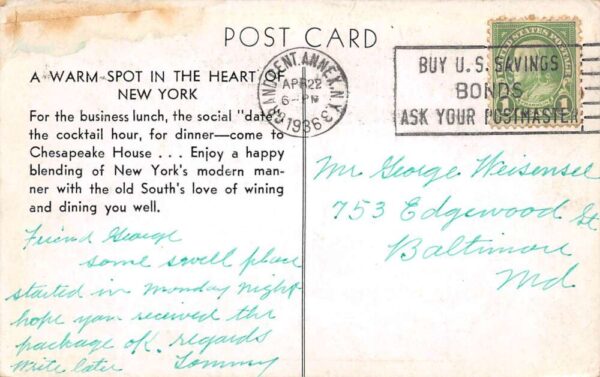 POST CARD
A WARM SPOT IN THE HEART OF
NEW YORK
For the business lunch, the social "date",
the cocktail hour, for dinner—come to
Chesapeake House . . . Enjoy a happy
blending of New York's modern man-
ner with the old South's love of wining
and dining you well.
Friend George
some swell place
started in Monday night
hope you received the
package ok. regards
Write later Tommy
GRAND CENT. ANNEX. N.Y. 3
APR 22
6-PM
1936
BUY U.S. SAVINGS
BONDS
ASK YOUR POSTMASTER
UNITED STATES POSTAGE
1
Mr George Weisensee
753 Edgewood St
Baltimore
Md